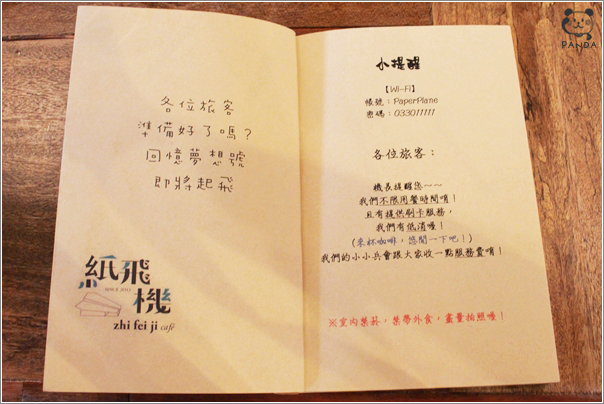 各位旅客
準備好了嗎？
回憶夢想號
即將起飛
紙飛機
zhi fei ji café
小提醒
【Wi-Fi】
帳號：PaperPlane
密碼：033011111
各位旅客：
機長提醒您～～
我們不限用餐時間唷！
且有提供刷卡服務，
我們有低消喔！
（來杯咖啡，悠閒一下吧！）
我們的小小兵會跟大家收一點服務費唷！
※室內禁菸，禁帶外食，盡量拍照喔！
PANDA